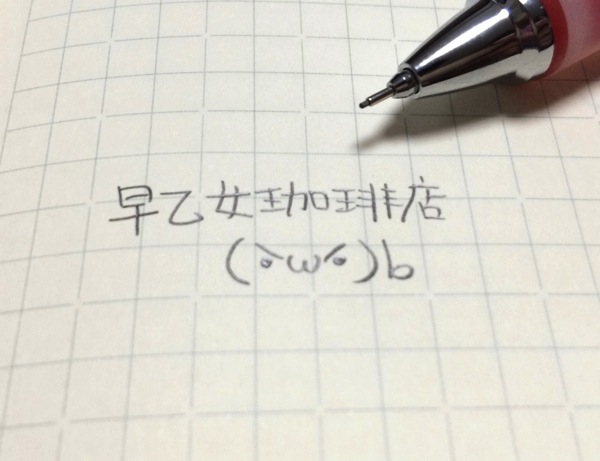 早乙女珈琲店
(`・ω・´)b